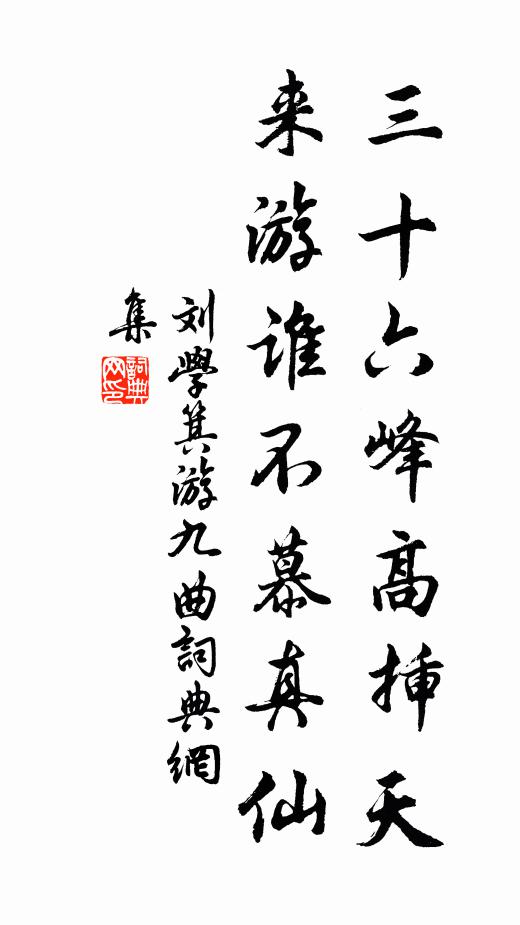 三十六峰高挿天
来游谁不慕真仙
刘學箕游九曲詞典網
集
詞典
网印